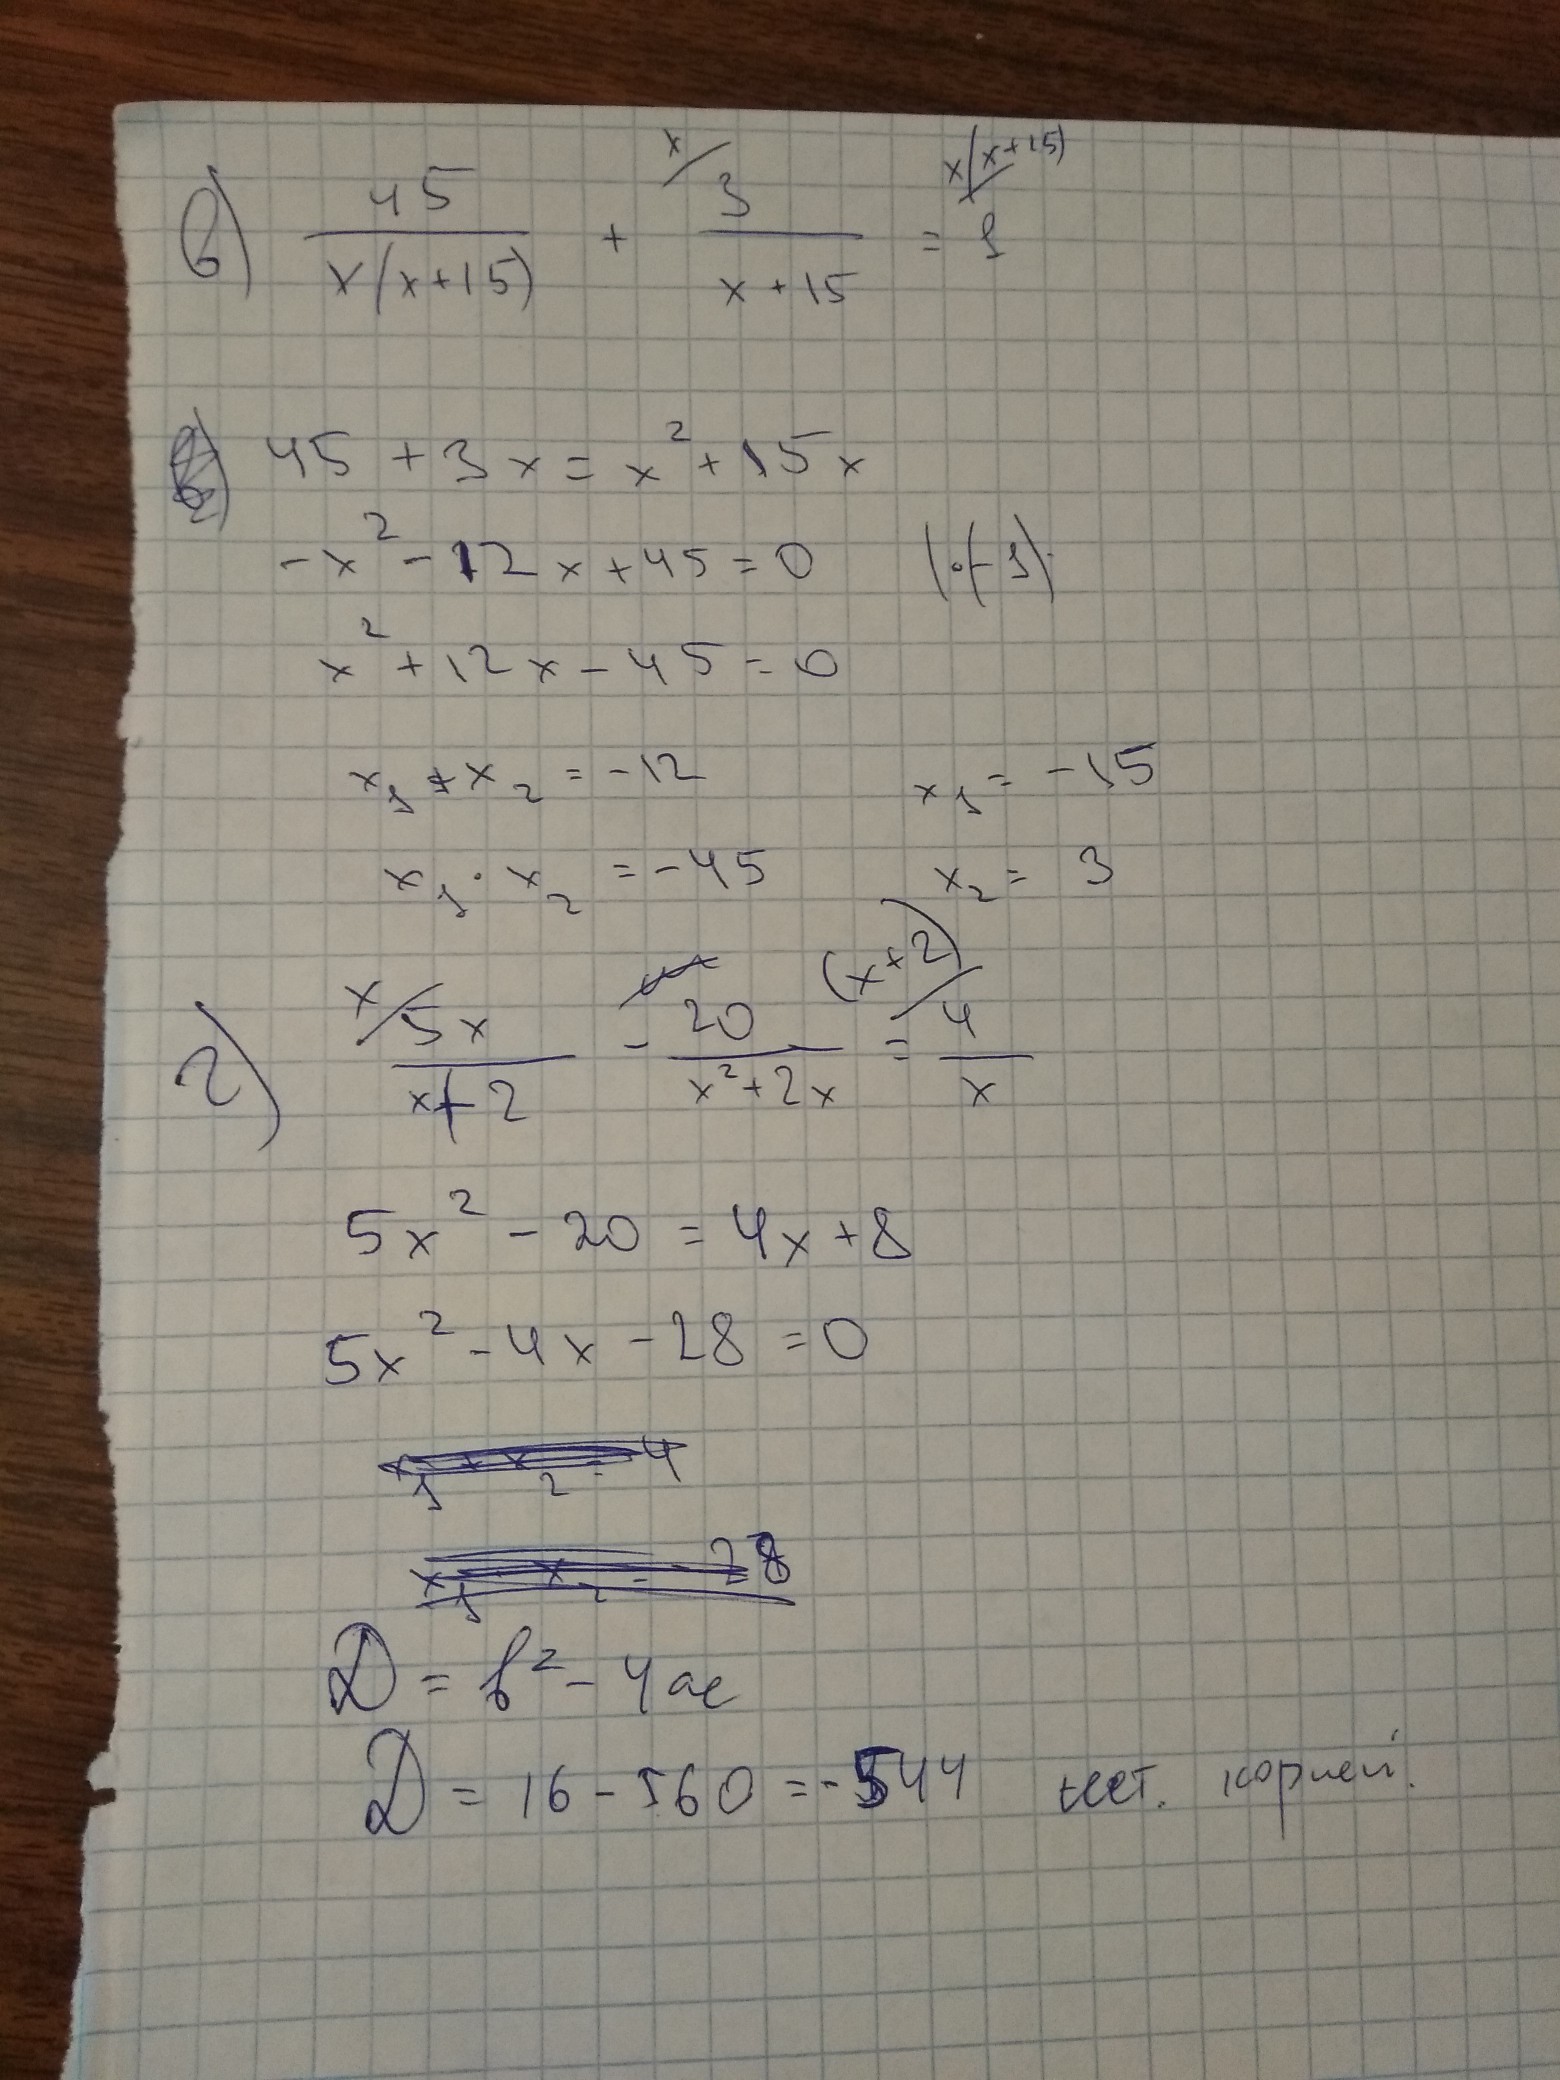 в) 45/(x(x+15)) + x/ 3/(x+15) = 1 x(x+15)/
45 + 3x = x² + 15x
-x² - 12x + 45 = 0 (·(-1)
x² + 12x - 45 = 0
x₁ + x₂ = -12 x₁ = -15
x₁ · x₂ = -45 x₂ = 3
г) x/ 5x/(x+2) - 20/(x²+2x) = (x+2)/ 4/x
5x² - 20 = 4x + 8
5x² - 4x - 28 = 0
x₁ + x₂ = 4
x₁ · x₂ = -28
D = b² - 4ac
D = 16 - 560 = -544 нет. корней.